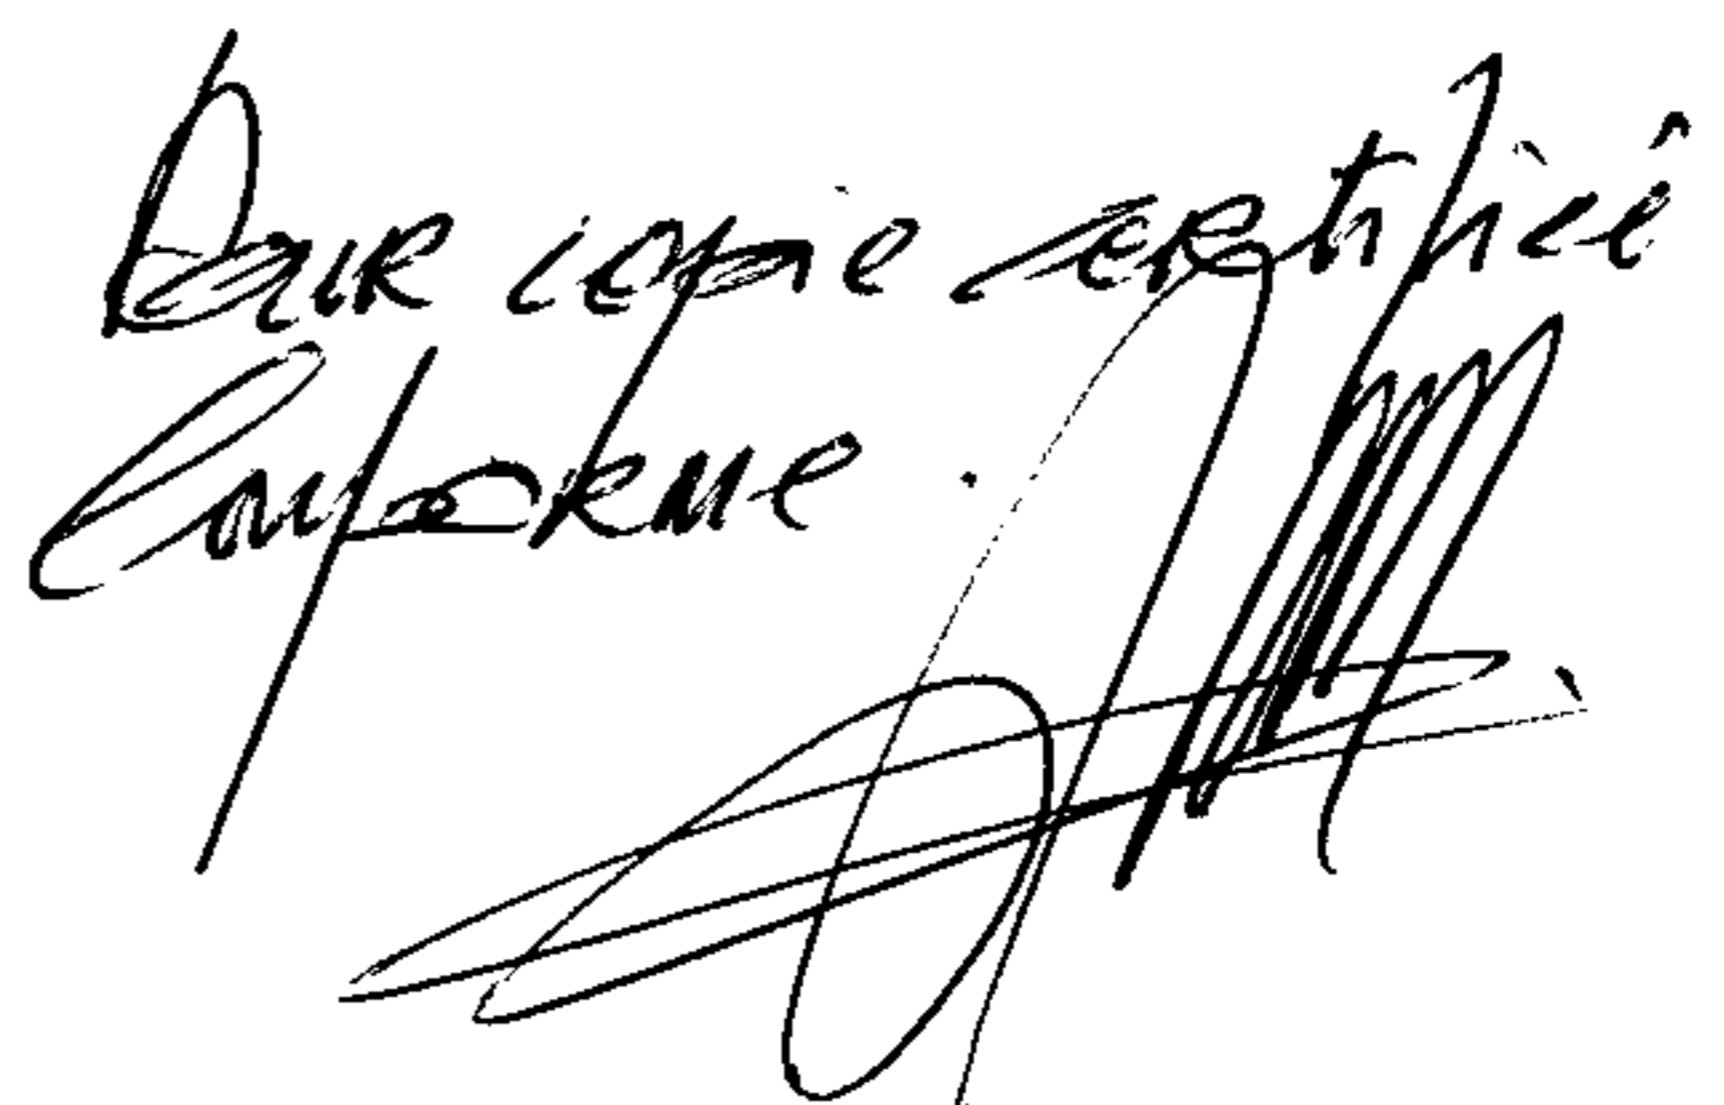 Pour copie certifiée
Conforme.